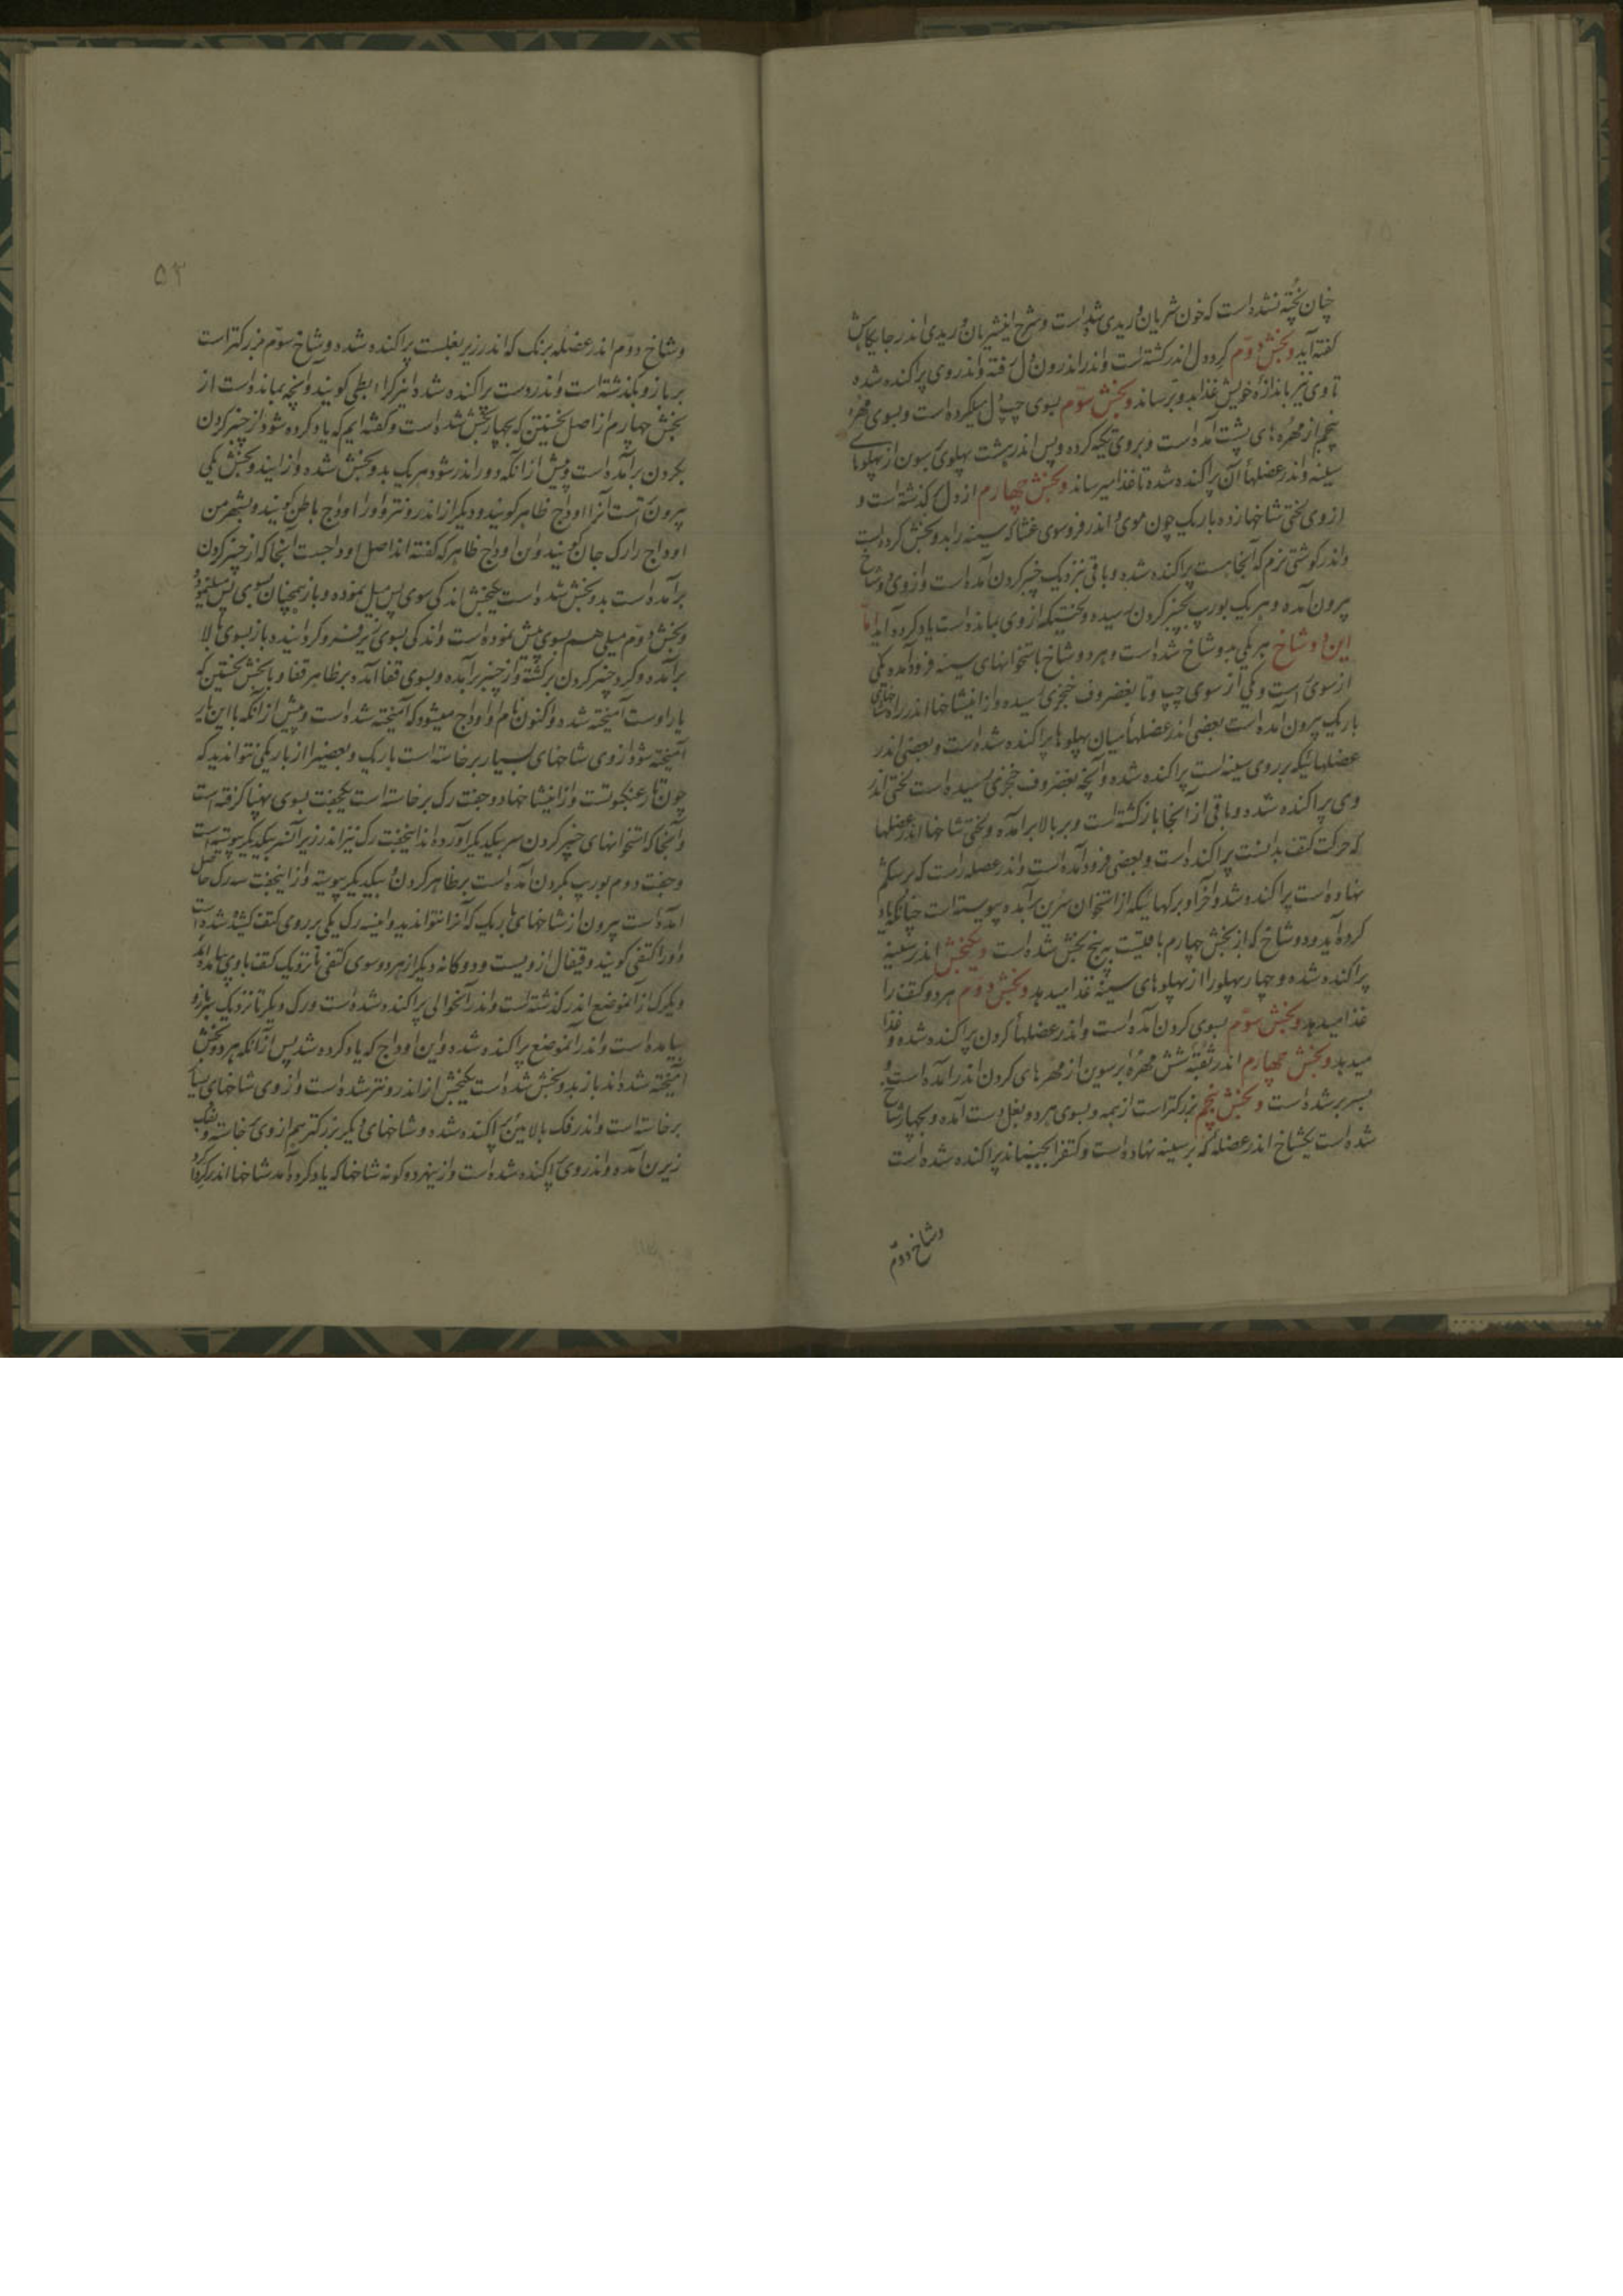 چنان پخته نشده است که خون شریان وریدی شده است و شرح این شریان وریدی اندر جایگاهش
گفته آید و بخش دوم گرد دل اندر گشته است و اندر اندرون دل رفته و اندر وی پراکنده شده
تا وی نیز باندازه خویش غذا بدو برساند و بخش سوم بسوی چپ دل میل کرده است و بسوی مهره
پنجم از مهره های پشت آمده است و بر وی تکیه کرده و پس اندر هشت پهلوی سون از پهلوهای
سینه و اندر عضلهاء آن پراکنده شده تا غذا میرساند و بخش چهارم از دل گذشته است و
از وی لختی شاخها زده باریک چون موی و اندر فروسوی غشا که سینه را بدو بخش کرده است
و اندر گوشتی نرم که آنجا هست پراکنده شده و باقی نزدیک چنبر گردن آمده است و از وی دو شاخ
بیرون آمده و هر یک بورب بچنبر گردن رسیده و بختیکه از وی بمانده است یاد کرده آید اما
این دو شاخ هر یکی بدو شاخ شده است و هر دو شاخ باستخوانهای سینه فرود آمده یکی
از سوی راست و یکی از سوی چپ و تا بغضروف خنجری رسیده و از این شاخها اندر راه شاخهای
باریک بیرون آمده است بعضی اندر عضلهاء میان پهلوها پراکنده شده است و بعضی اندر
عضلهائیکه بر روی سینه است پراکنده شده و آنچه بغضروف خنجری رسیده است لختی اندر
وی پراکنده شده و باقی از آنجا بازگشته است و بر بالا برآمده و لختی شاخها اندر عضلها
که حرکت کتف بدانست پراکنده است و بعضی فرود آمده است و اندر عضله راست که بر شکم
نهاده است پراکنده شد و آخر او برگهائیکه از استخوان سرین برآمده پیوسته است چنانکه یاد
کرده آید و دو شاخ که از بخش چهارم باقیست به پنج بخش شده است و یکبخش اندر سینه
پراکنده شده و چهار پهلو را از پهلوهای سینه غذا میدهد و بخش دوم هر دو کتف را
غذا میدهد و بخش سوم بسوی گردن آمده است و اندر عضلهاء گردن پراکنده شده و غذا
میدهد و بخش چهارم اندر ثقبه شش مهره برسوین از مهرهای گردن اندر آمده است و
بسر بر شده است و بخش پنجم بزرگتر است از همه و بسوی هر دو بغل دست آمده و بچهار شاخ
شده است یکشاخ اندر عضله که بر سینه نهاده است و کتف را بجنباند پراکنده شده است
و شاخ دوم
۵۳
و شاخ دوم اندر عضله بزرگ که اندر زیر بغلست پراکنده شده و شاخ سوم بزرگتر است
بر بازو بگذشته است و اندر دست پراکنده شده این رگ را ابطی گویند و آنچه بمانده است از
بخش چهارم از اصل نخستین که بچهار بخش شده است و گفته ایم که یاد کرده شود از چنبر گردن
بگردن برآمده است و پیش از آنکه دور اندر شود هر یک بدو بخش شده و از ایند و بخش یکی
بیرون است آنرا اوداج ظاهر گویند و دیگر از اندرون تر و او را اوداج باطن گویند و بشهر من
اوداج را رگ جان گویند و آن اوداج ظاهر که گفته اند اصل اوداجست آنجا که از چنبر گردن
برآمده است بدو بخش شده است یکبخش اندکی سوی پس میل نموده و باز همچنان بسوی پس
و بخش دوم میلی هم بسوی پیش نموده است و اندکی بسوی زیر فرو گردانیده باز بسوی بالا
برآمده و گرد چنبر گردن برگشته و از چنبر برآمده و بسوی قفا آمده بر ظاهر قفا و با بخش نخستین که
یار اوست آمیخته شده و اکنون نام او اوداج میشود که آمیخته شده است و پیش از آنکه با این یار
آمیخته شود از وی شاخهای بسیار برخاسته است باریک و بعضی را از باریکی نتوان دید که
چون تار عنکبوتست و از این شاخها دو جفت رگ برخاسته است یکجفت بسوی پهنا گرفته است
و آنجا که استخوانهای چنبر گردن سر بیکدیگر آورده اند اینجفت رگ نیز اندر زیر آن سر بیکدیگر پیوسته است
و جفت دوم بورب بگردن آمده است بر ظاهر گردن و بیکدیگر پیوسته و از اینجفت سه رگ حاصل
آمده است بیرون از شاخهای باریک که آنرا نتوان دید و این سه رگ یکی بر روی کتف کشیده شده است
و او را کتفی گویند و قیفال از ویست و دوگانه دیگر از هر دو سوی کتفی تا نزدیک کتف با وی بیامده اند
و یکرگ از آن موضع اندر گذشته است و اندر آن حوالی پراکنده شده است و رگ دیگر تا نزدیک سر بازو
بیامده است و اندر آن موضع پراکنده شده و این اوداج که یاد کرده شد پس از آنکه هر دو بخش
آمیخته شده اند باز بدو بخش شده است یکبخش از اندرون تر شده است و از وی شاخهای بسیار
برخاسته است و اندر فک بالائین پراکنده شده و شاخهای دیگر بزرگتر هم از وی خاسته و بفک
زیرین آمده و اندر وی پراکنده شده است و از ینهر دو گونه شاخها که یاد کرده آمد شاخها اندر گرد